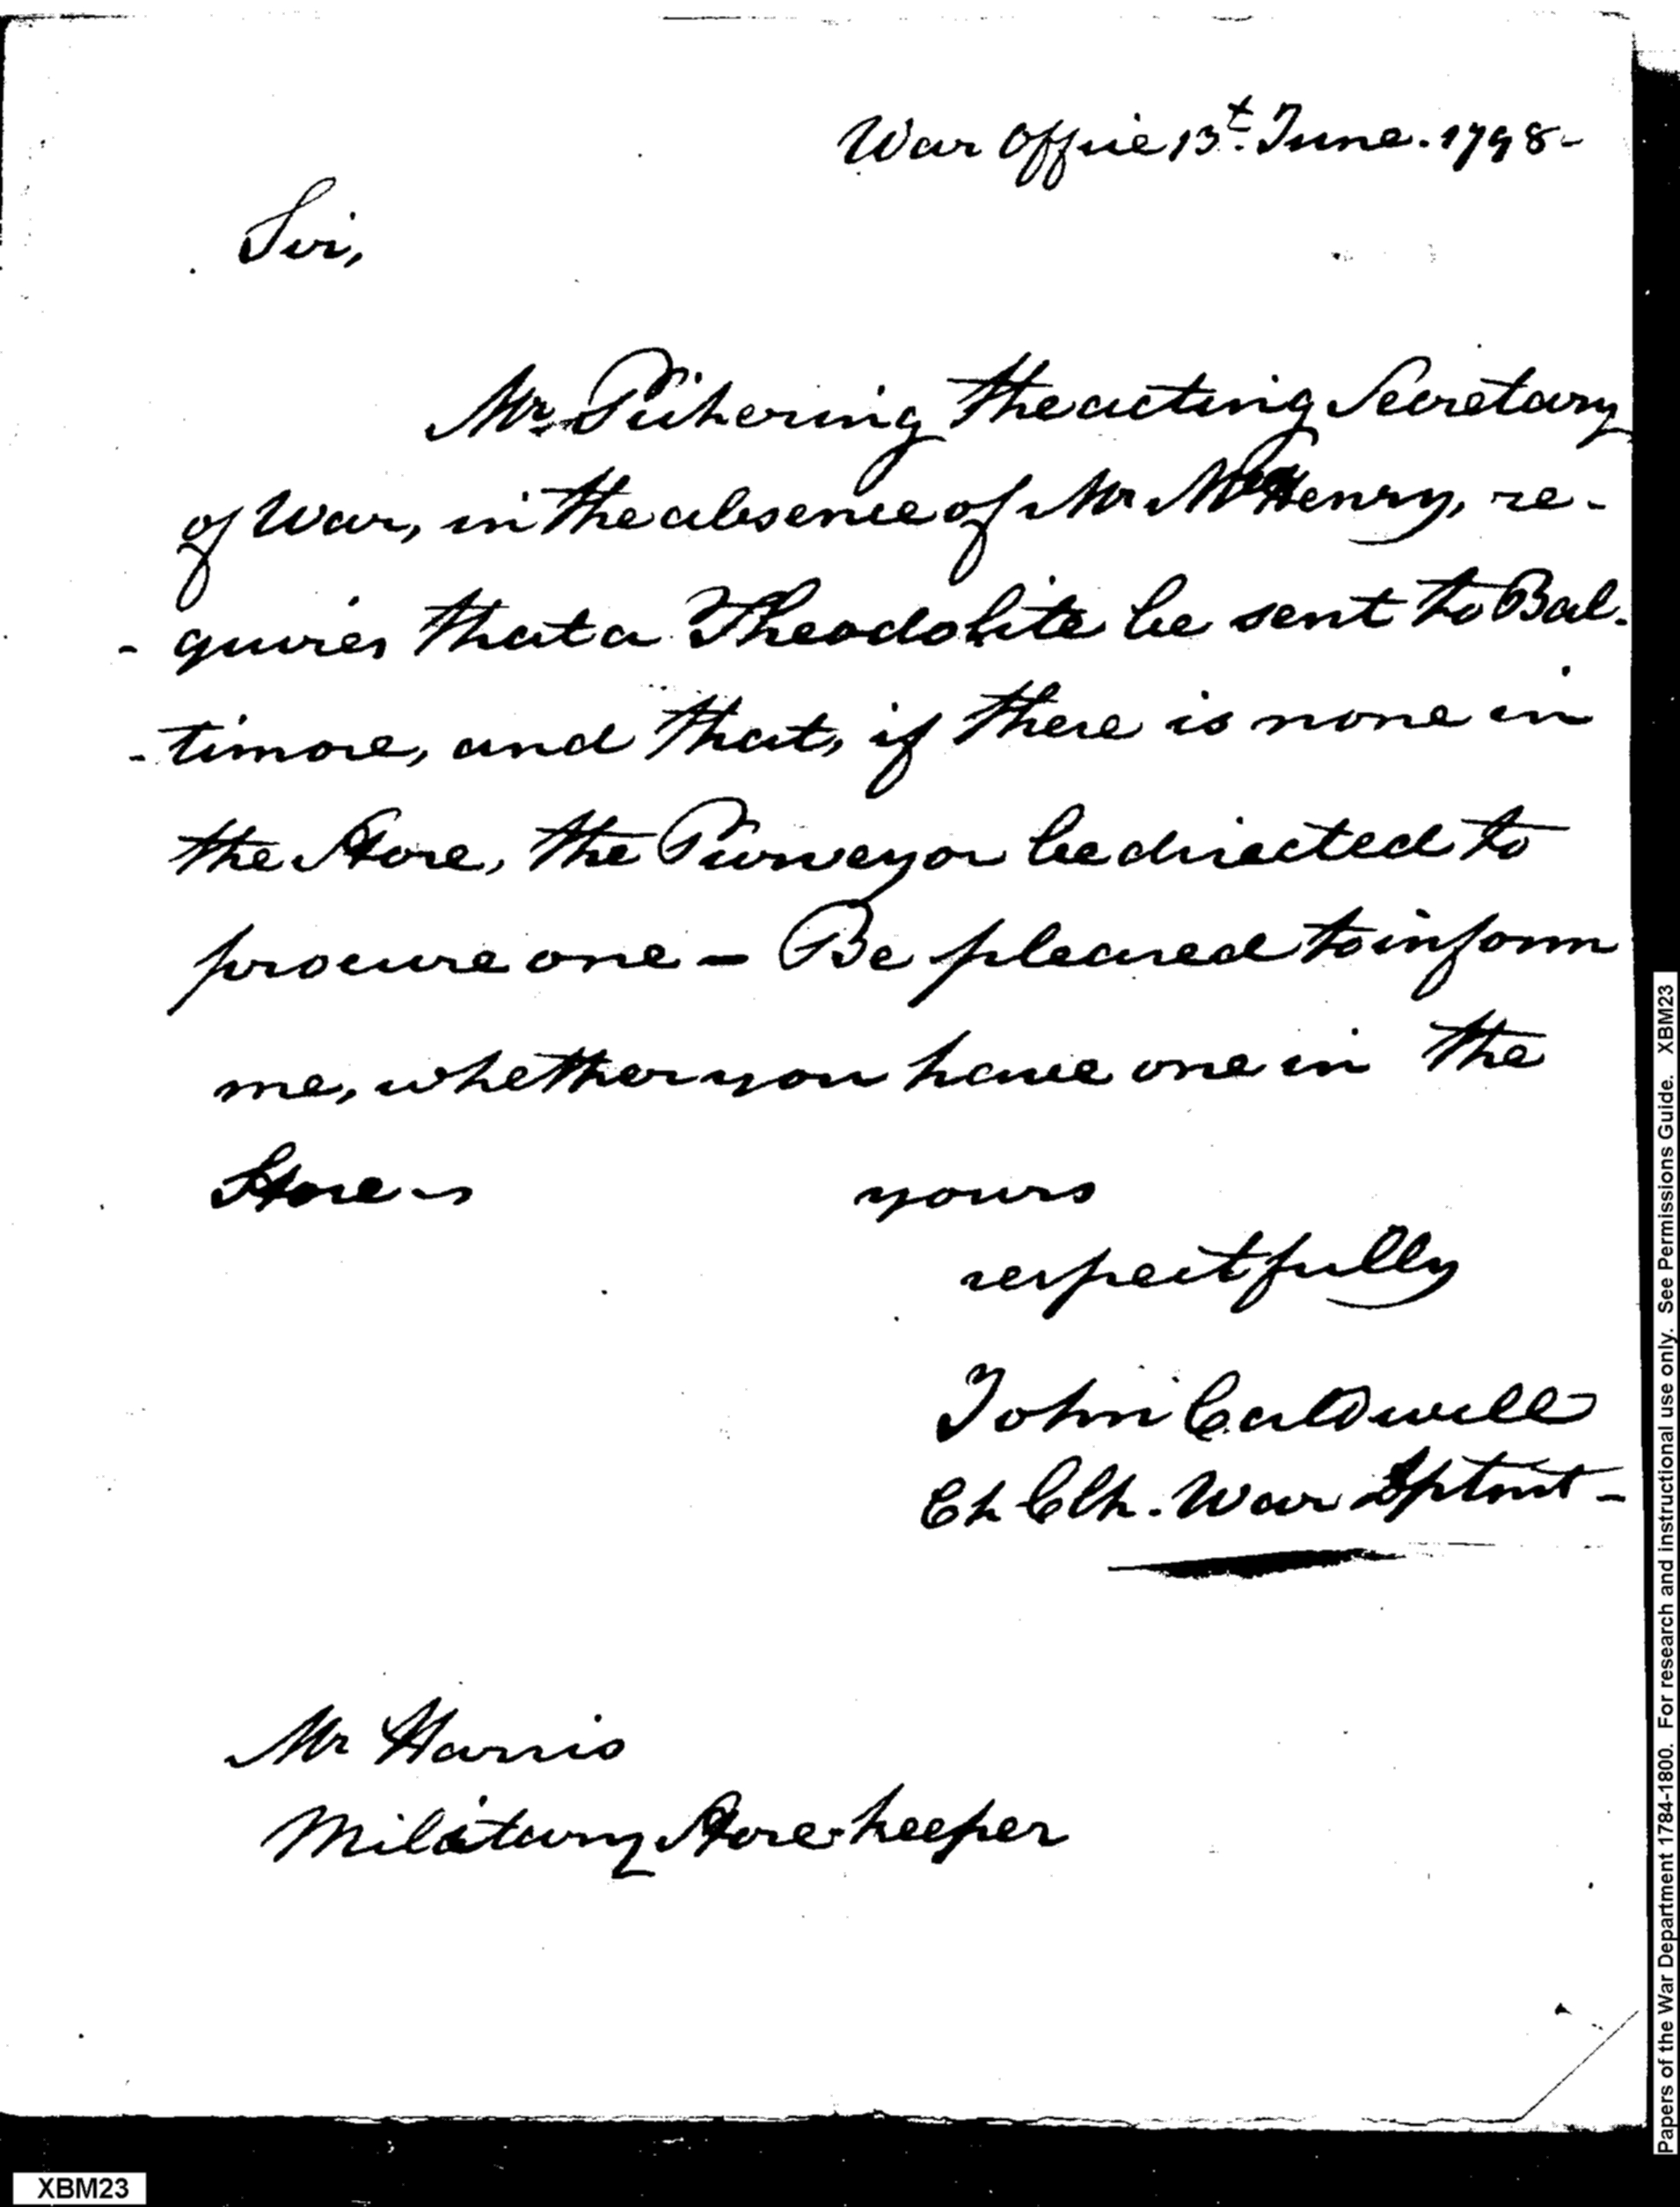 War Office 13t. June. 1798-
Sir,
Mr. Pickering the acting Secretary
of War, in the absence of Mr McHenry, re-
- quires that a Theodolite be sent to Bal.
- timore, and that, if there is none in
the Store, the Purveyor be directed to
procure one - Be pleased to inform
me, whether you have one in the
Store -
yours
respectfully
John Caldwell
Ch Clk. War Dptmt -
Mr Harris
Military Store-keeper
XBM23
Papers of the War Department 1784-1800. For research and instructional use only. See Permissions Guide. XBM23